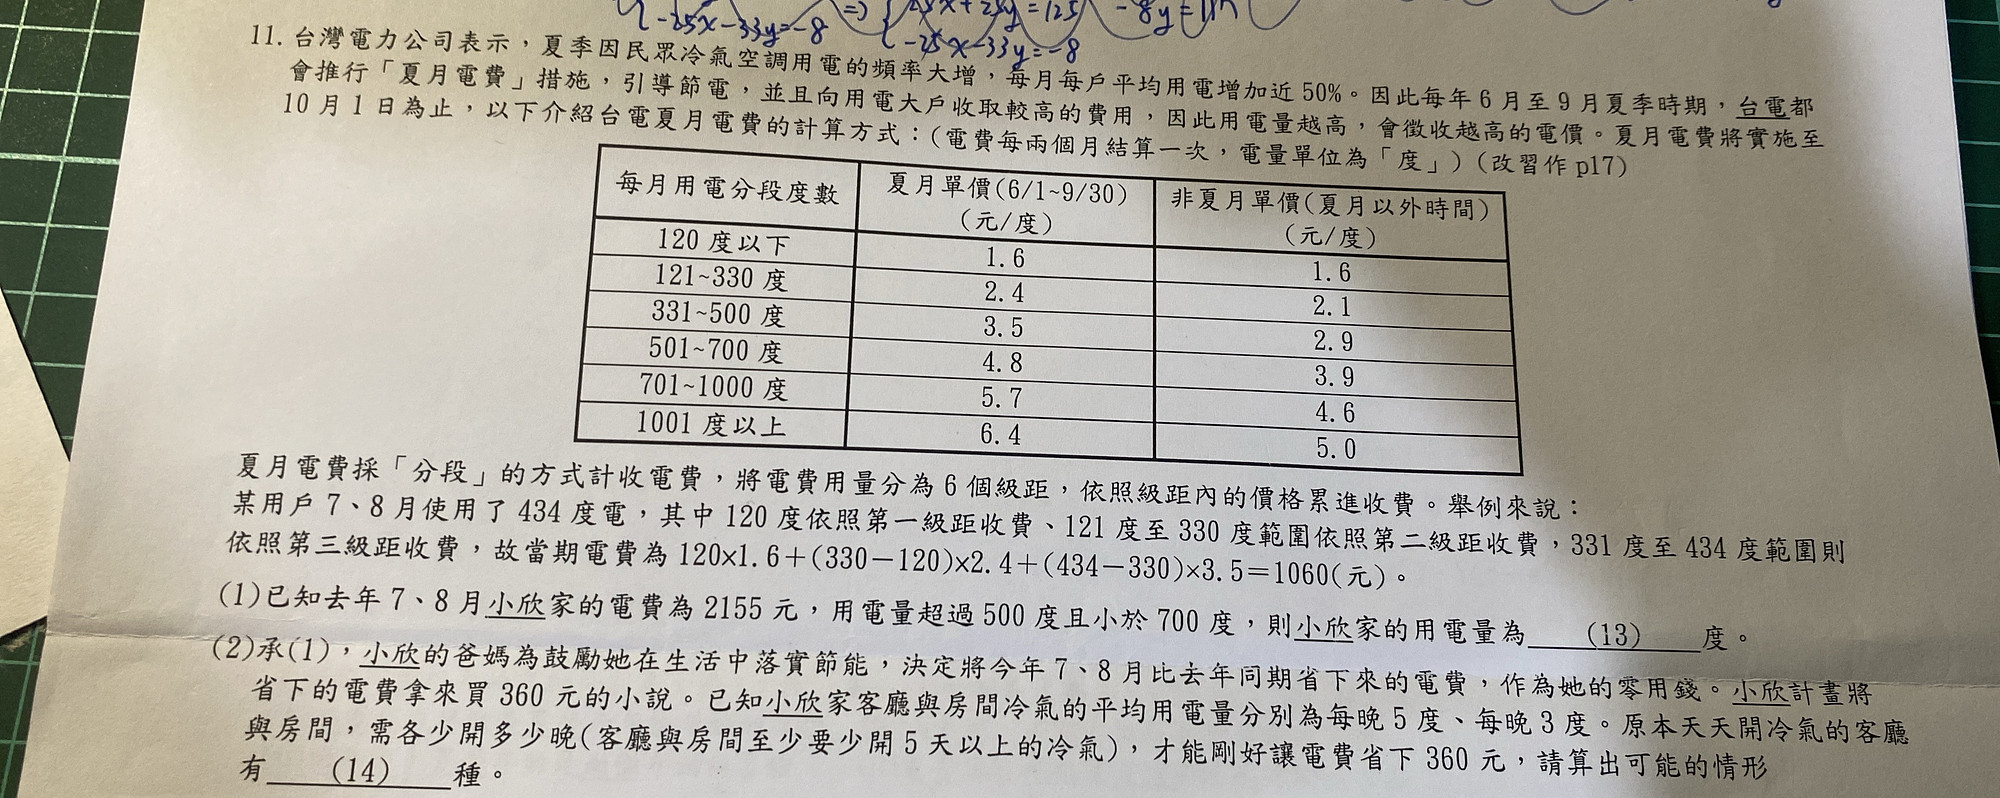 -25x-33y=-8 => 25x+25y=125 -8y=117
-25x-33y=-8
11. 台灣電力公司表示，夏季因民眾冷氣空調用電的頻率大增，每月每戶平均用電增加近50%。因此每年6月至9月夏季時期，台電都
會推行「夏月電費」措施，引導節電，並且向用電大戶收取較高的費用，因此用電量越高，會徵收越高的電價。夏月電費將實施至
10月1日為止，以下介紹台電夏月電費的計算方式：(電費每兩個月結算一次，電量單位為「度」)(改習作p17)
每月用電分段度數 夏月單價(6/1~9/30) 非夏月單價(夏月以外時間)
(元/度) (元/度)
120度以下 1.6 1.6
121~330度 2.4 2.1
331~500度 3.5 2.9
501~700度 4.8 3.9
701~1000度 5.7 4.6
1001度以上 6.4 5.0
夏月電費採「分段」的方式計收電費，將電費用量分為6個級距，依照級距內的價格累進收費。舉例來說：
某用戶7、8月使用了434度電，其中120度依照第一級距收費、121度至330度範圍依照第二級距收費，331度至434度範圍則
依照第三級距收費，故當期電費為120×1.6+(330-120)×2.4+(434-330)×3.5=1060(元)。
(1)已知去年7、8月小欣家的電費為2155元，用電量超過500度且小於700度，則小欣家的用電量為 (13) 度。
(2)承(1)，小欣的爸媽為鼓勵她在生活中落實節能，決定將今年7、8月比去年同期省下來的電費，作為她的零用錢。小欣計畫將
省下的電費拿來買360元的小說。已知小欣家客廳與房間冷氣的平均用電量分別為每晚5度、每晚3度。原本天天開冷氣的客廳
與房間，需各少開多少晚(客廳與房間至少要少開5天以上的冷氣)，才能剛好讓電費省下360元，請算出可能的情形
有 (14) 種。